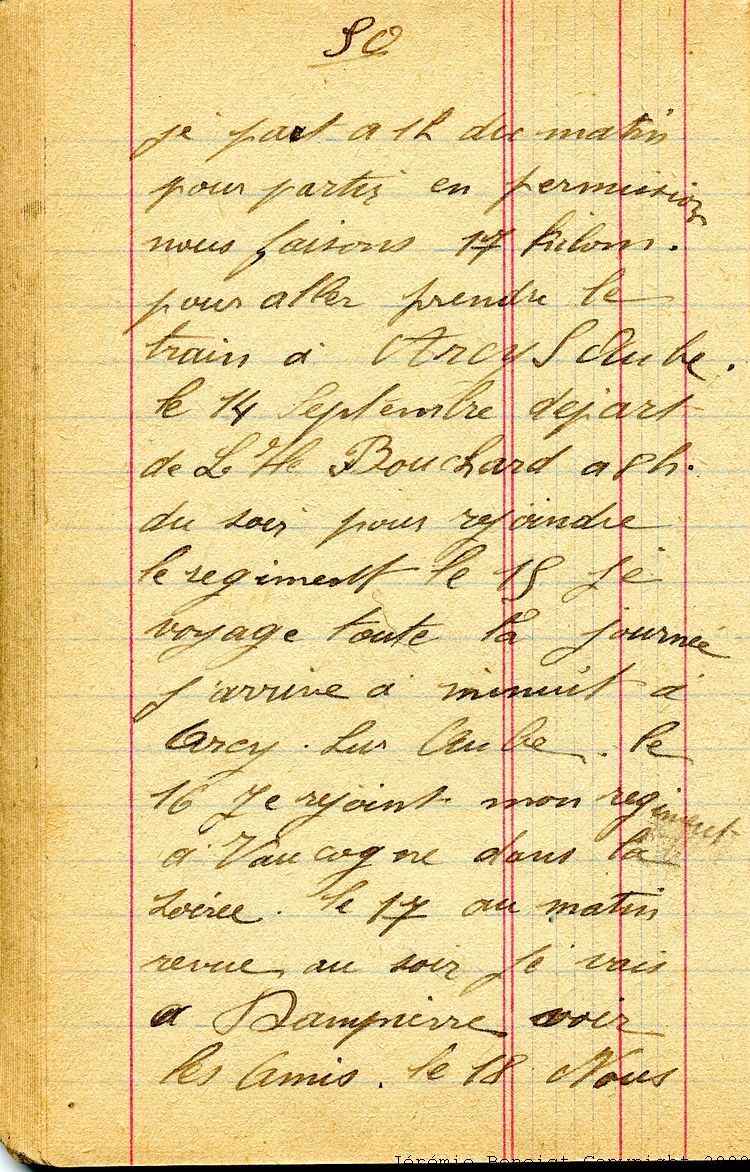 50
je part a 1h du matin
pour partir en permission
nous faisons 17 kilom.
pour aller prendre le
train a Arcy S Aube.
le 14 Septembre depart
de L'Ile Bouchard a 8h.
du soir pour rejoindre
le regiment le 15 je
voyage toute la journée
j'arrive a minuit a
Arcy. Sur Aube. le
16 Je rejoint mon regiment
a Vaucogne dans la
soirée. le 17 au matin
revue au soir je vais
a Dampierre voir
les Amis. le 18 Nous
Jérémie Benoist Copyright